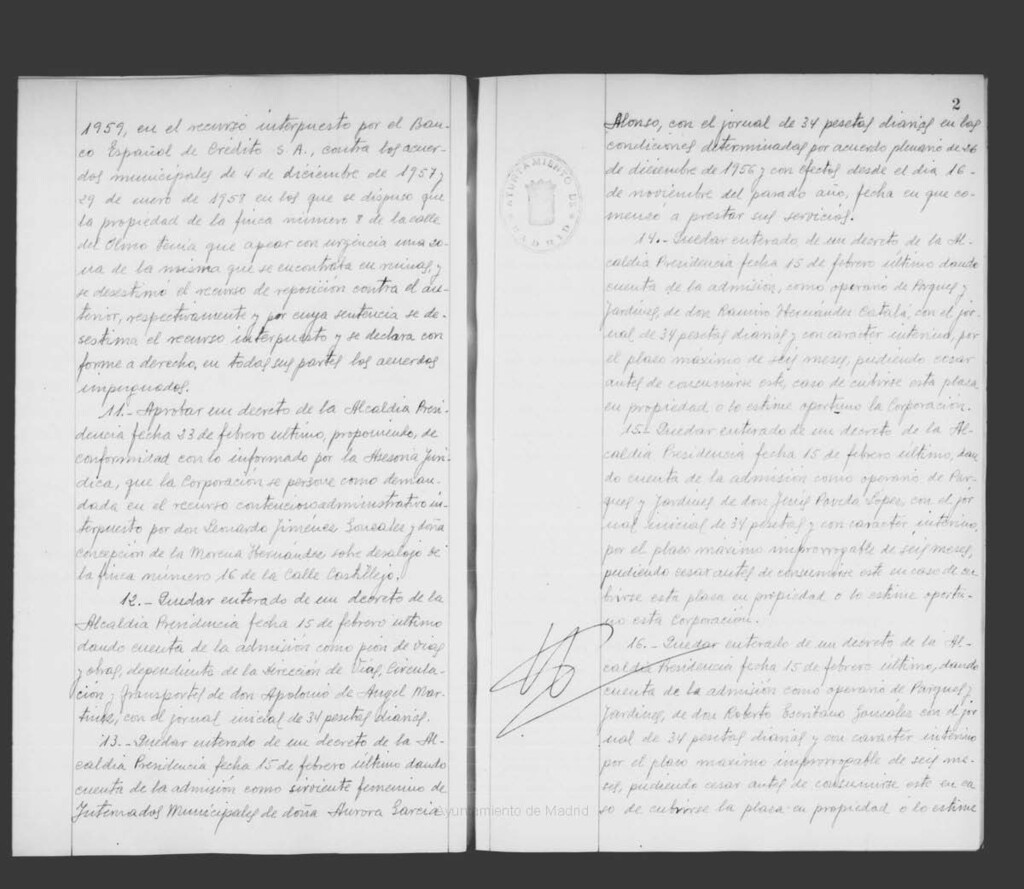 1959, en el recurso interpuesto por el Ban-
co Español de Crédito S.A., contra los acuer-
dos municipales de 4 de diciembre de 1957 y
29 de enero de 1958 en los que se dispuso que
la propiedad de la finca número 8 de la calle
del Olmo tenia que apear con urgencia una zo-
na de la misma que se encontraba en ruinas, y
se desestimó el recurso de reposición contra el an-
terior, respectivamente y por cuya sentencia se de-
sestima el recurso interpuesto y se declara con
forme a derecho, en todas sus partes los acuerdos
impugnados.
11.- Aprobar un decreto de la Alcaldia Presi-
dencia fecha 23 de febrero último, proponiendo, de
conformidad con lo informado por la Asesoria Juri-
dica, que la Corporación se persone como deman-
dada en el recurso contenciosoadministrativo in-
terpuesto por don Leonardo Jiménez Gonzalez y doña
Concepción de la Morena Hernández sobre desalojo de
la finca número 16 de la Calle Castillejo.
12.- Quedar enterado de un decreto de la
Alcaldia Presidencia fecha 15 de febrero último
dando cuenta de la admisión como peón de vias
y obras, dependiente de la Dirección de Vias, Circula-
ción y Transportes de don Apolonio de Angel Mar-
tinez, con el jornal inicial de 34 pesetas diarias.
13.- Quedar enterado de un decreto de la Al-
caldia Presidencia fecha 15 de febrero último dando
cuenta de la admisión como sirviente femenino de
Internados Municipales de doña Aurora Garcia
2
Alonso, con el jornal de 34 pesetas diarias en las
condiciones determinadas por acuerdo plenario de 26
de diciembre de 1956 y con efectos desde el dia 16-
de noviembre del pasado año, fecha en que co-
menzó a prestar sus servicios.
14.- Quedar enterado de un decreto de la Al-
caldia Presidencia fecha 15 de febrero último dando
cuenta de la admisión, como operario de Parques y
Jardines, de don Ramiro Hernández Catalá, con el jor-
nal de 34 pesetas diarias y con carácter interino, por
el plazo máximo de seis meses, pudiendo cesar
antes de consumirse este, caso de cubrirse esta plaza
en propiedad o lo estime oportuno la Corporación.
15.- Quedar enterado de un decreto de la Al-
caldia Presidencia fecha 15 de febrero último, dan
do cuenta de la admisión como operario de Par-
ques y Jardines de don Luis Poveda Lopez, con el jor
nal inicial de 34 pesetas y con carácter interino,
por el plazo máximo improrrogable de seis meses,
pudiendo cesar antes de consumirse este en caso de cu
brirse esta plaza en propiedad o lo estime oportu-
no esta Corporación.
16.- Quedar enterado de un decreto de la Al-
caldia Presidencia fecha 15 de febrero último, dando
cuenta de la admisión como operario de Parques y
Jardines, de don Roberto Escribano Gonzalez con el jor
nal de 34 pesetas diarias y con carácter interino
por el plazo máximo improrrogable de seis me-
ses, pudiendo cesar antes de consumirse este en ca
so de cubrirse la plaza en propiedad o lo estime
AYUNTAMIENTO DE MADRID
Ayuntamiento de Madrid